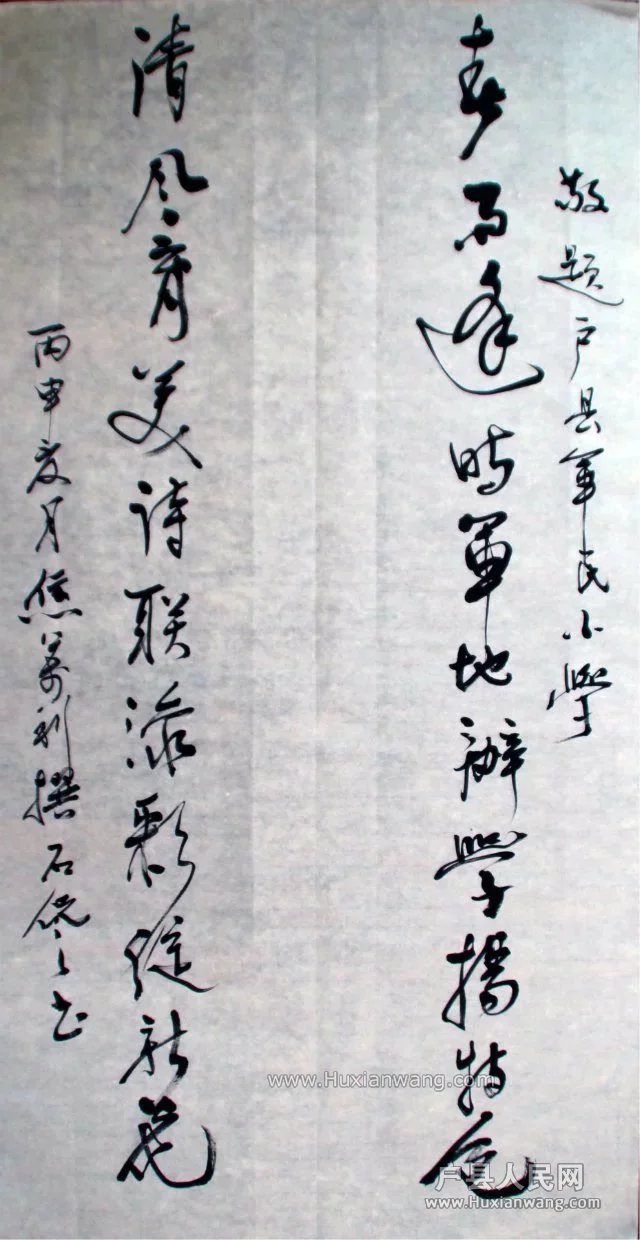 敬题户县军民小学
春雨逢时军地办学扬特色
清风育美诗联添彩绽新花
丙申夏月焦万利撰石侃之书
www.Huxianwang.com
户县人民网
www.Huxianwang.com